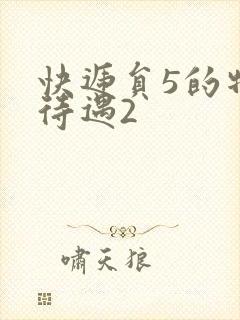 快递员5的特
待遇2
啸天狼